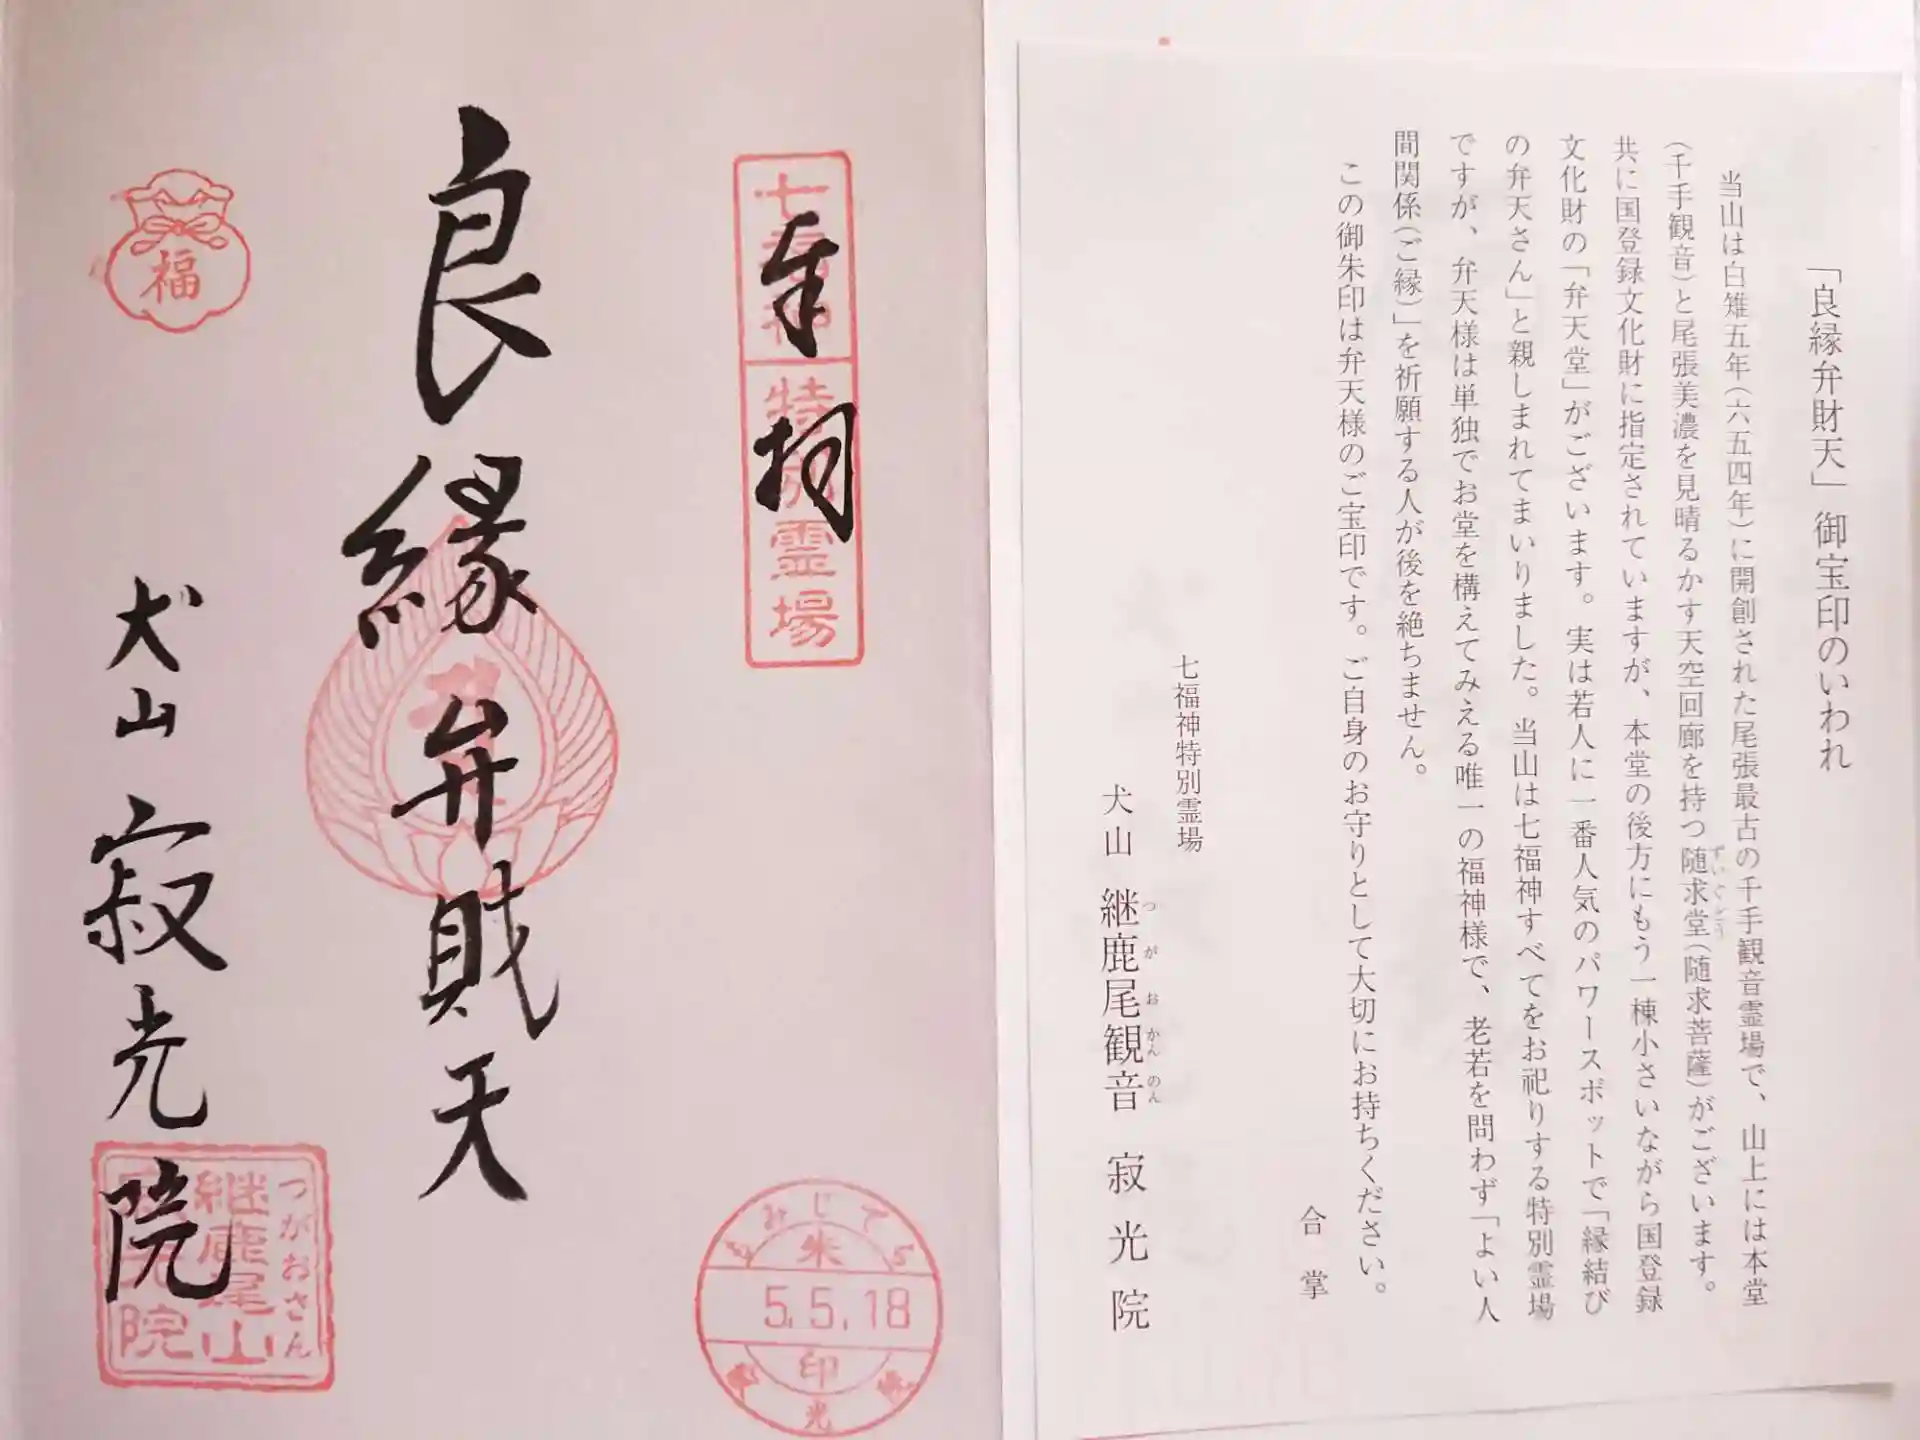 「良縁弁財天」御宝印のいわれ
当山は白雉五年(六五四年)に開創された尾張最古の千手観音霊場で、山上には本堂
(千手観音)と尾張美濃を見晴るかす天空回廊を持つ随求堂(随求菩薩)がございます。
ずいぐどう
共に国登録文化財に指定されていますが、本堂の後方にもう一棟小さいながら国登録
文化財の「弁天堂」がございます。実は若人に一番人気のパワースポットで「縁結び
の弁天さん」と親しまれてまいりました。当山は七福神すべてをお祀りする特別霊場
ですが、弁天様は単独でお堂を構えてみえる唯一の福神様で、老若を問わず「よい人
間関係(ご縁)」を祈願する人が後を絶ちません。
この御朱印は弁天様のご宝印です。ご自身のお守りとして大切にお持ちください。
合掌
七福神特別霊場
犬山 継鹿尾観音 寂光院
つがおかんのん
七福神 特別霊場
奉拝
良縁弁財天
福
犬山 寂光院
つがおさん
継鹿尾山
寂光院
もみじでら
朱
5.5.18
印
光